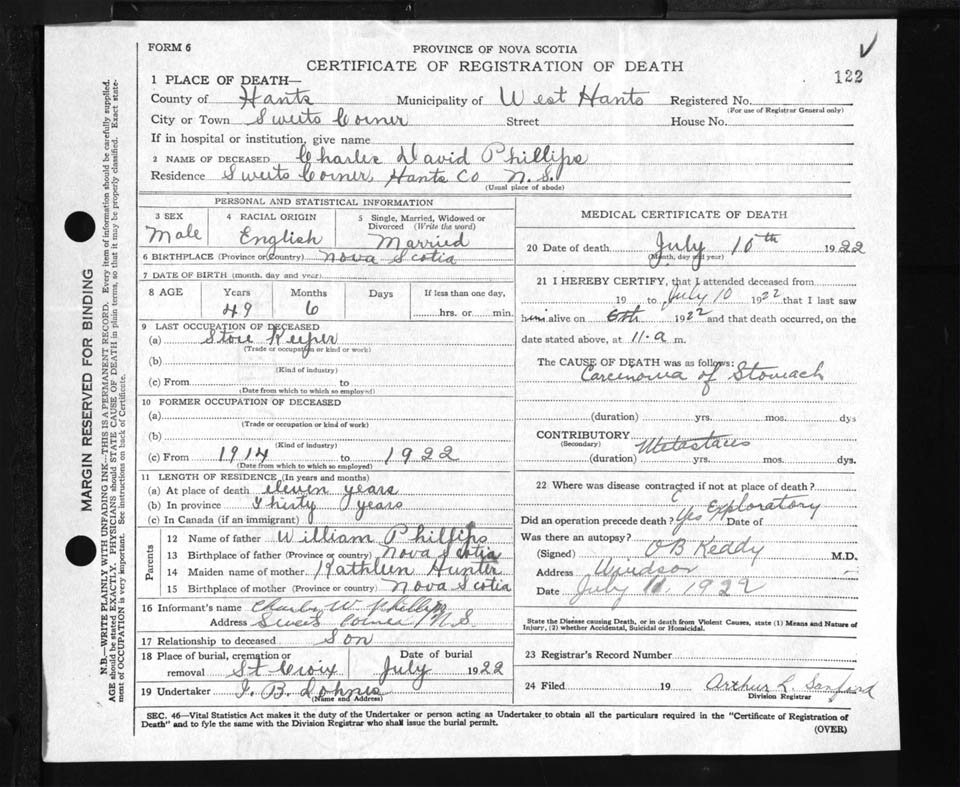 FORM 6
PROVINCE OF NOVA SCOTIA
CERTIFICATE OF REGISTRATION OF DEATH
122
1 PLACE OF DEATH—
County of Hants Municipality of West Hants Registered No.
(For use of Registrar General only)
City or Town Sweets Corner Street House No.
If in hospital or institution, give name
2 NAME OF DECEASED Charles David Phillips
Residence Sweets Corner, Hants Co N.S.
(Usual place of abode)
PERSONAL AND STATISTICAL INFORMATION
3 SEX
Male
4 RACIAL ORIGIN
English
5 Single, Married, Widowed or
Divorced (Write the word)
Married
6 BIRTHPLACE (Province or Country) Nova Scotia
7 DATE OF BIRTH (month, day and year)
8 AGE Years Months Days If less than one day,
49 6 hrs. or min.
9 LAST OCCUPATION OF DECEASED
(a) Store Keeper
(Trade or occupation or kind or work)
(b)
(Kind of industry)
(c) From to
(Date from which to which so employed)
10 FORMER OCCUPATION OF DECEASED
(a)
(Trade or occupation or kind of work)
(b)
(Kind of industry)
(c) From 1914 to 1922
(Date from which to which so employed)
11 LENGTH OF RESIDENCE (In years and months)
(a) At place of death eleven years
(b) In province Thirty years
(c) In Canada (if an immigrant)
Parents
12 Name of father William Phillips
13 Birthplace of father (Province or country) Nova Scotia
14 Maiden name of mother Kathleen Hunter
15 Birthplace of mother (Province or country) Nova Scotia
16 Informant's name Charles W. Phillips
Address Sweets Corner N.S.
17 Relationship to deceased Son
18 Place of burial, cremation or Date of burial
removal St Croix July 1922
19 Undertaker J. B. Lohnes
(Name and Address)
MEDICAL CERTIFICATE OF DEATH
20 Date of death July 10th 1922
(Month, day and year)
21 I HEREBY CERTIFY, that I attended deceased from
19 to July 10 1922 that I last saw
him alive on 6th 1922 and that death occurred, on the
date stated above, at 11.a m.
The CAUSE OF DEATH was as follows:
Carcinoma of Stomach
(duration) yrs. mos. dys
CONTRIBUTORY Metastasis
(Secondary)
(duration) yrs. mos. dys.
22 Where was disease contracted if not at place of death? ?
Did an operation precede death? Yes Exploratory Date of
Was there an autopsy?
(Signed) O B Keddy M.D.
Address Windsor
Date July 11, 1922
State the Disease causing Death, or in death from Violent Causes, state (1) Means and Nature of
Injury, (2) whether Accidental, Suicidal or Homicidal.
23 Registrar's Record Number
24 Filed 19 Arthur L. Sanford
Division Registrar
SEC. 46—Vital Statistics Act makes it the duty of the Undertaker or person acting as Undertaker to obtain all the particulars required in the "Certificate of Registration of
Death" and to fyle the same with the Division Registrar who shall issue the burial permit.
(OVER)
MARGIN RESERVED FOR BINDING
N.B.—WRITE PLAINLY WITH UNFADING INK—THIS IS A PERMANENT RECORD. Every item of information should be carefully supplied.
AGE should be stated EXACTLY. PHYSICIANS should STATE CAUSE OF DEATH in plain terms, so that it may be properly classified. Exact state-
ment of OCCUPATION is very important. See instructions on back of Certificate.